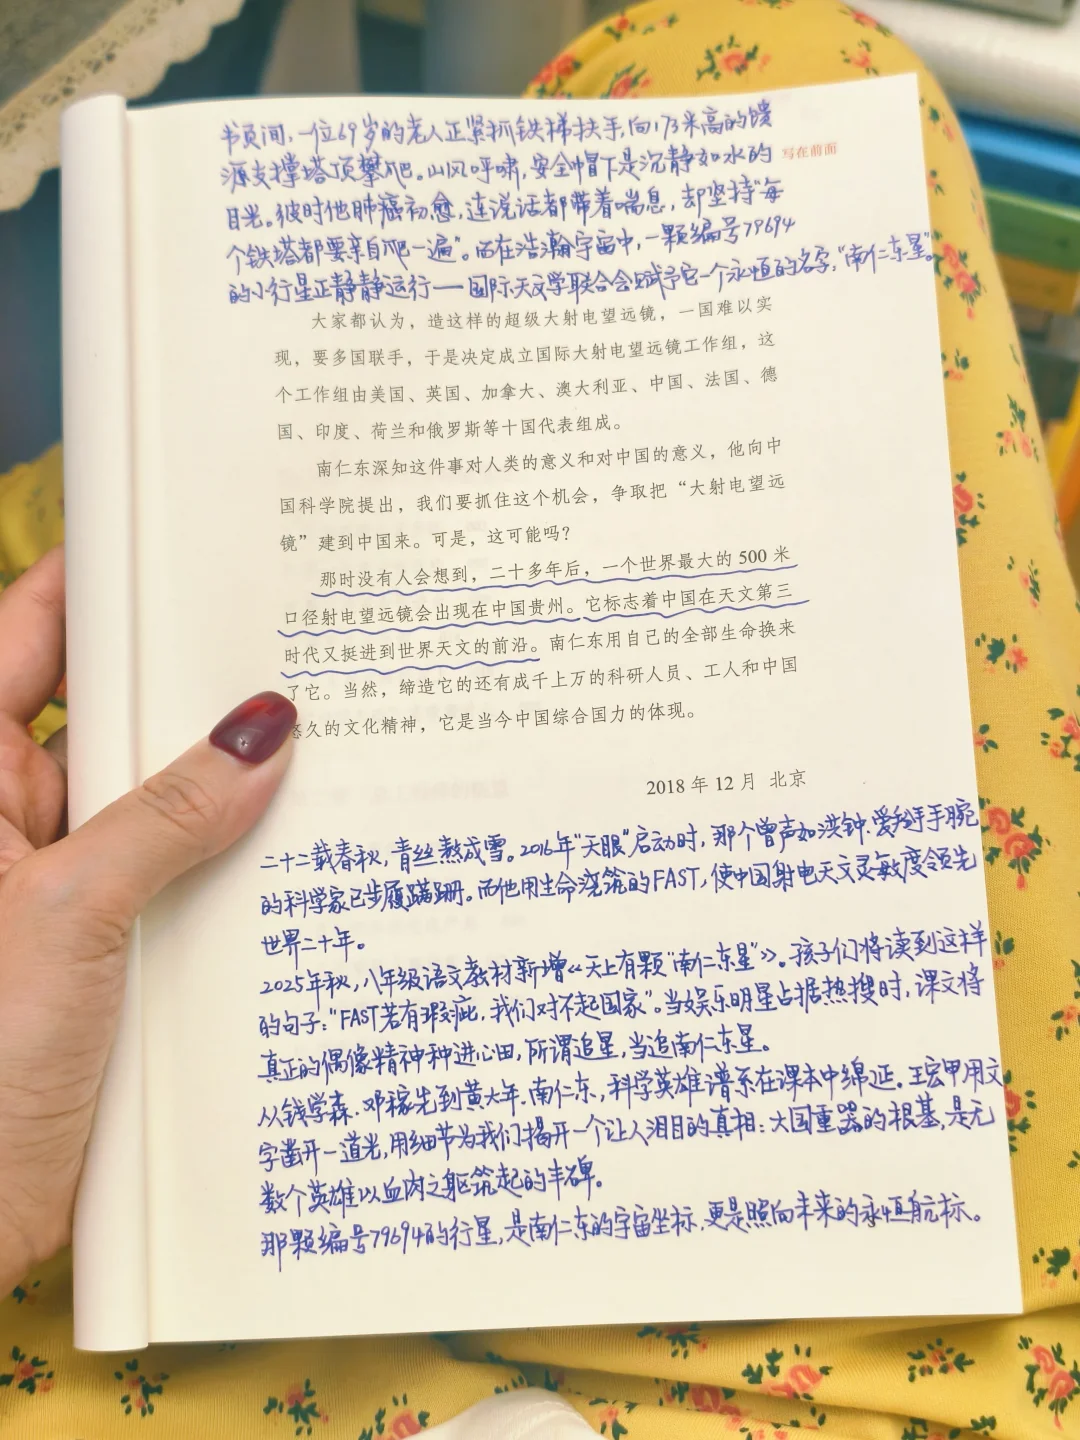 书页间，一位69岁的老人正紧抓铁梯扶手，向173米高的馈
写在前面
源支撑塔顶攀爬。山风呼啸，安全帽下是沉静如水的
目光。彼时他肺癌初愈，连说话都带着喘息，却坚持“每
个铁塔都要亲自爬一遍”。而在浩瀚宇宙中，一颗编号79694
的小行星正静静运行——国际天文学联合会赋予它一个永恒的名字，“南仁东星”。
大家都认为，造这样的超级大射电望远镜，一国难以实
现，要多国联手，于是决定成立国际大射电望远镜工作组，这
个工作组由美国、英国、加拿大、澳大利亚、中国、法国、德
国、印度、荷兰和俄罗斯等十国代表组成。
南仁东深知这件事对人类的意义和对中国的意义，他向中
国科学院提出，我们要抓住这个机会，争取把“大射电望远
镜”建到中国来。可是，这可能吗？
那时没有人会想到，二十多年后，一个世界最大的500米
口径射电望远镜会出现在中国贵州。它标志着中国在天文第三
时代又挺进到世界天文的前沿。南仁东用自己的全部生命换来
了它。当然，缔造它的还有成千上万的科研人员、工人和中国
悠久的文化精神，它是当今中国综合国力的体现。
2018年12月 北京
二十二载春秋，青丝熬成雪。2016年“天眼”启动时，那个曾声如洪钟、爱挽手腕
的科学家已步履蹒跚。而他用生命浇筑的FAST，使中国射电天文灵敏度领先
世界二十年。
2025年秋，八年级语文教材新增《天上有颗“南仁东星”》。孩子们将读到这样
的句子：“FAST若有瑕疵，我们对不起国家”。当娱乐明星占据热搜时，课文将
真正的偶像精神种进心田，所谓追星，当追南仁东星。
从钱学森、邓稼先到黄大年、南仁东，科学英雄谱系在课本中绵延。王宏甲用文
字凿开一道光，用细节为我们揭开一个让人泪目的真相：大国重器的根基，是无
数个英雄以血肉之躯筑起的丰碑。
那颗编号79694的行星，是南仁东的宇宙坐标，更是照向未来的永恒航标。